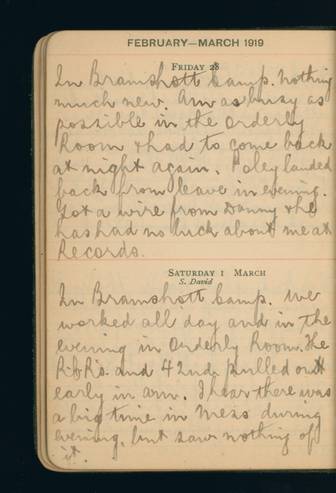 FEBRUARY—MARCH 1919
FRIDAY 28
In Bramshott Camp. Nothing
much new. Am as busy as
possible in the Orderly
Room & had to come back
at night again. Foley landed
back from leave in evening.
Got a wire from Danny & he
has had no luck about me at
Records.
SATURDAY 1 MARCH
S. David
In Bramshott Camp. We
worked all day and in the
evening in Orderly Room. The
and 42nd. pulled out
early in am. I hear there was
a big time in Mess during
evening, but saw nothing of
it.